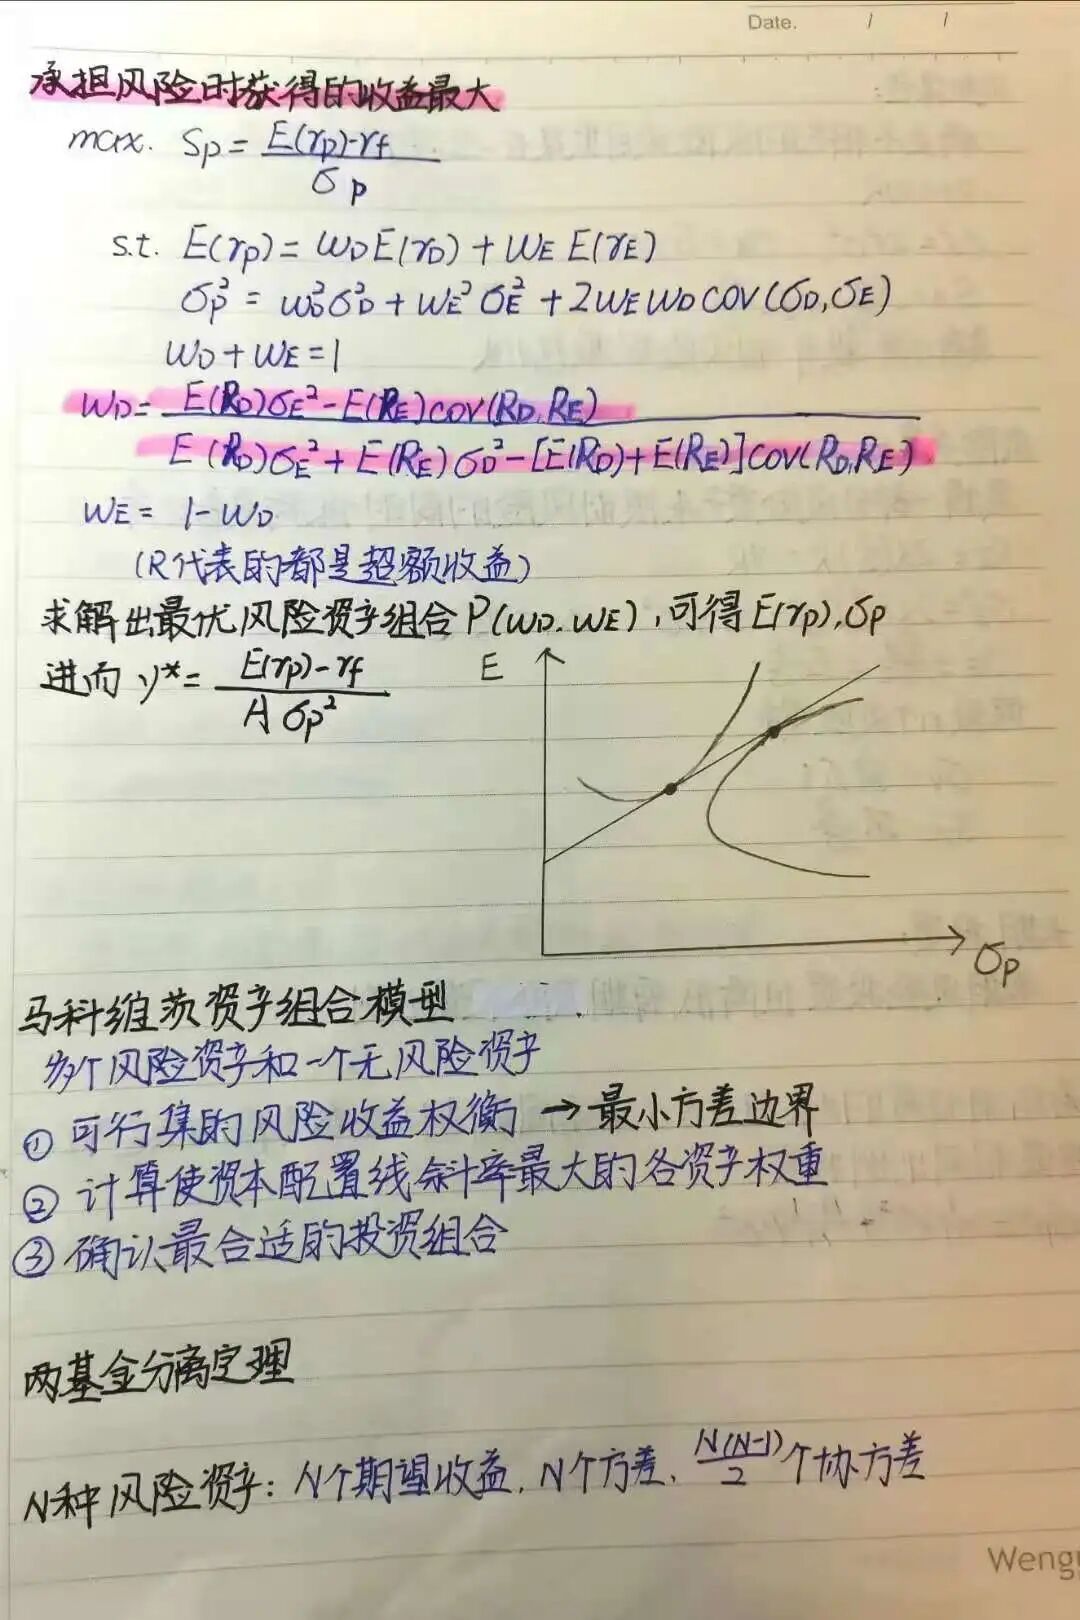 Date. / /
承担风险时获得的收益最大
max. Sp = E(rp)-rf / σp
s.t. E(rp) = wD E(rD) + wE E(rE)
σp² = wD²σD² + wE²σE² + 2wEwD cov(σD,σE)
wD + wE = 1
wD = E(RD)σE² - E(RE)cov(RD,RE) / E(RD)σE² + E(RE)σD² - [E(RD)+E(RE)]cov(RD,RE)
wE = 1 - wD
(R代表的都是超额收益)
求解出最优风险资产组合P(wD.wE),可得E(rp),σp
进而 y* = E(rp)-rf / Aσp²
E
σp
马科维茨资产组合模型
多个风险资产和一个无风险资产
① 可行集的风险收益权衡 → 最小方差边界
② 计算使资本配置线斜率最大的各资产权重
③ 确认最合适的投资组合
两基金分离定理
N种风险资产: N个期望收益, N个方差, N(N-1)/2个协方差